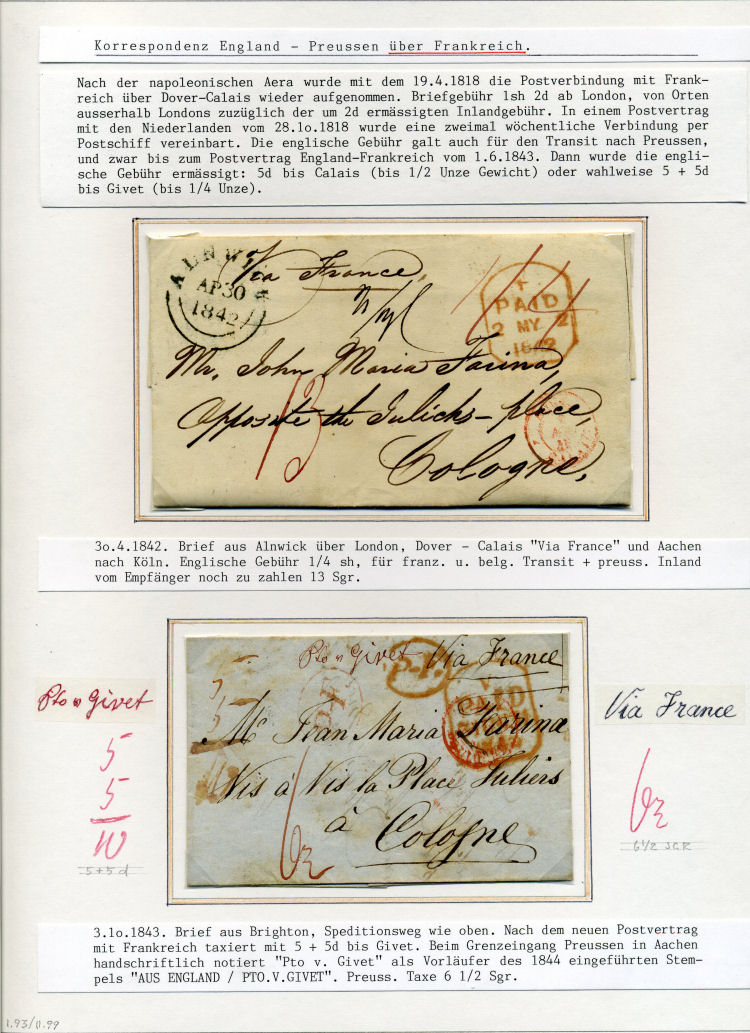 Korrespondenz England - Preussen über Frankreich.
Nach der napoleonischen Aera wurde mit dem 19.4.1818 die Postverbindung mit Frank-
reich über Dover-Calais wieder aufgenommen. Briefgebühr 1sh 2d ab London, von Orten
ausserhalb Londons zuzüglich der um 2d ermässigten Inlandgebühr. In einem Postvertrag
mit den Niederlanden vom 28.1o.1818 wurde eine zweimal wöchentliche Verbindung per
Postschiff vereinbart. Die englische Gebühr galt auch für den Transit nach Preussen,
und zwar bis zum Postvertrag England-Frankreich vom 1.6.1843. Dann wurde die engli-
sche Gebühr ermässigt: 5d bis Calais (bis 1/2 Unze Gewicht) oder wahlweise 5 + 5d
bis Givet (bis 1/4 Unze).
ALNWICK
AP 30
1842
Via France,
PAID
2 MY 2
1842
Mr. John Maria Farina,
Opposite the Julichs-place,
13
Cologne,
3o.4.1842. Brief aus Alnwick über London, Dover - Calais "Via France" und Aachen
nach Köln. Englische Gebühr 1/4 sh, für franz. u. belg. Transit + preuss. Inland
vom Empfänger noch zu zahlen 13 Sgr.
Pto v Givet
P.F.
Via France
PAID
Mr Jean Maria Farina
Vis à Vis la Place Juliers
à
Cologne
6½
Pto v Givet
5
5
10
5+5 d
Via France
6½
6 1/2 SGR
3.1o.1843. Brief aus Brighton, Speditionsweg wie oben. Nach dem neuen Postvertrag
mit Frankreich taxiert mit 5 + 5d bis Givet. Beim Grenzeingang Preussen in Aachen
handschriftlich notiert "Pto v. Givet" als Vorläufer des 1844 eingeführten Stem-
pels "AUS ENGLAND / PTO.V.GIVET". Preuss. Taxe 6 1/2 Sgr.
1.93/11.99